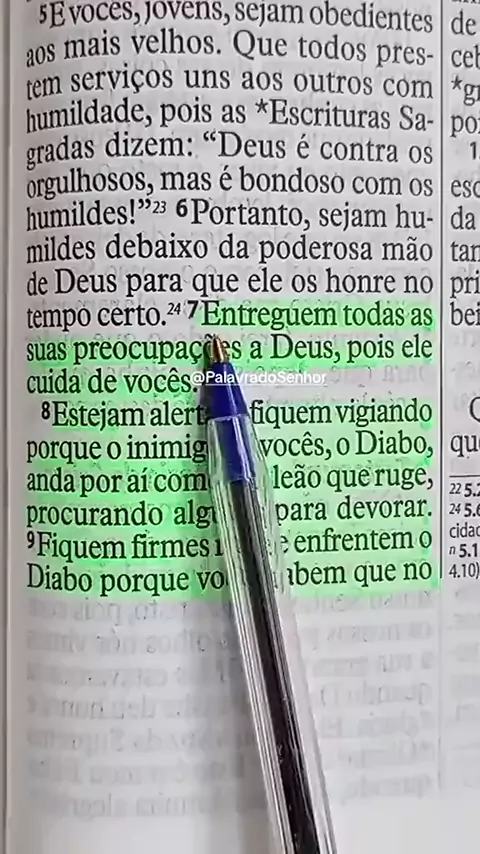 5E vocês, jovens, sejam obedientes
aos mais velhos. Que todos pres-
tem serviços uns aos outros com
humildade, pois as *Escrituras Sa-
gradas dizem: “Deus é contra os
orgulhosos, mas é bondoso com os
humildes!”23 6Portanto, sejam hu-
mildes debaixo da poderosa mão
de Deus para que ele os honre no
tempo certo.24 7Entreguem todas as
suas preocupações a Deus, pois ele
cuida de vocês.
@PalavradoSenhor
8Estejam fiquem vigiando
porque o vocês, o Diabo,
anda por aí leão que ruge,
procurando para devorar.
9Fiquem firmes enfrentem o
Diabo porque que no
de
ceb
*gr
po
1
esc
da
tan
pri
bei
qu
22 5.
24 5.6
cida
n 5.1
4.10)